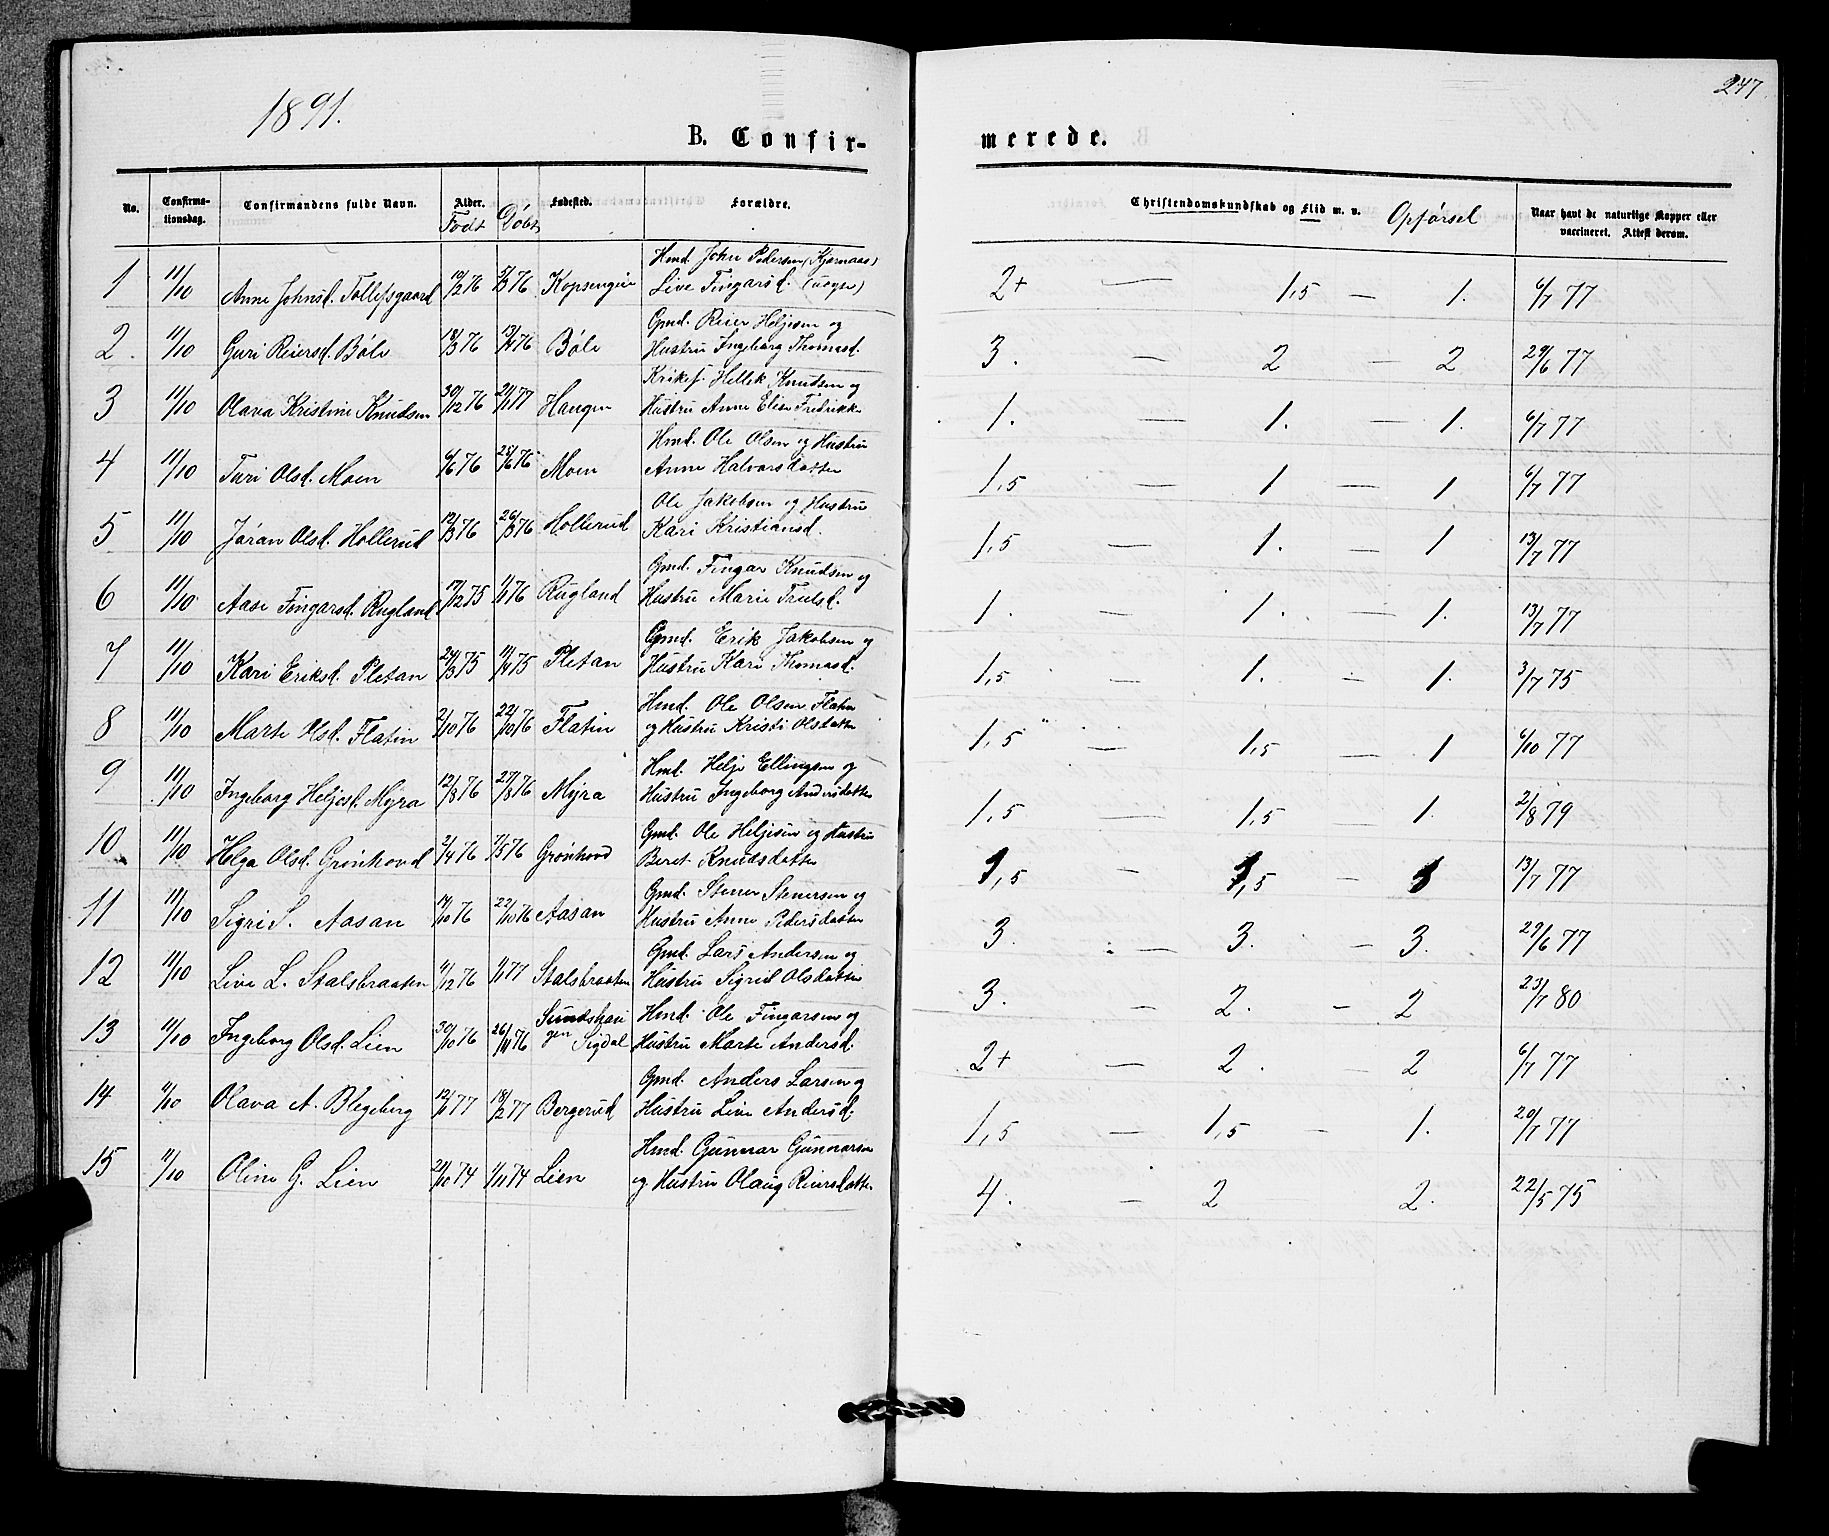 1891.
247
B. Confir-
merede.
No. Confirma-tionsdag. Confirmandens fulde Navn. Alder. Født Døbt Fødested. Forældre. Christendomskundskab og Flid m. v. Opførsel Naar havt de naturlige Kopper eller vaccineret. Attest derom.
1 11/10 Anne Johnsd. Tollefsgaard 10/2 76 5/3 76 Kopsengen Hmd. John Pedersen (Kjørnaas) 2+ — 1,5 — 1. 6/7 77
Live Fingarsd. (uægte)
2. 11/10 Guri Reiersd. Bøle 18/3 76 13/4 76 Bøle Gmd. Reier Heljesen og 3. — 2 — 2 29/6 77
Hustru Ingeborg Thomasd.
3 11/10 Olava Kristine Knudsen 30/12 76 21/1 77 Haugen Kirkes. Hellek Knudsen og 1. — 1. — 1. 6/7 77
Hustru Anne Elise Fredrikke
4 11/10 Turi Olsd. Moen 6/6 76 25/6 76 Moen Hmd. Ole Olsen og Hustru 1,5 — 1 — 1 6/7 77
Anne Halvorsdatter
5 11/10 Jøran Olsd. Hollerud 12/3 76 26/3 76 Hollerud Ole Jakobsen og Hustru 1,5 — 1. — 1 13/7 77
Kari Kristiansd.
6 11/10 Aase Fingarsd. Rugland 17/12 75 1/1 76 Rugland Gmd. Fingar Knudsen og 1. — 1. — 1. 13/7 77
Hustru Marie Trulsd.
7 11/10 Kari Eriksd. Pletan 24/3 75 11/4 75 Pletan Gmd. Erik Jakobsen og 1,5 — 1. — 1. 3/7 75
Hustru Kari Thomasd.
8 11/10 Marte Olsd. Flatin 2/10 76 22/10 76 Flatin Hmd. Ole Olsen Flatin 1,5 — 1,5 — 1 6/10 77
og Hustru Kristi Olsdatter
9 11/10 Ingeborg Heljesd. Myra 12/8 76 27/8 76 Myra Hmd. Helje Ellingsen og 1,5 — 1,5 — 1. 2/8 79
Hustru Ingeborg Andersdatter
10 11/10 Helga Olsd. Grønhovd 2/4 76 7/5 76 Grønhovd Gmd. Ole Heljesen og Hustru 1,5 — 1,5 — 13/7 77
Beret Knudsdatter
11 11/10 Sigri S. Aasan 14/10 76 22/10 76 Aasan Gmd. Stener Stenersen og 3. — 3. — 3. 29/6 77
Hustru Anne Pedersdatter
12 11/10 Live L. Stalsbraaten 11/12 76 1/1 77 Stalsbraaten Gmd. Lars Andersen og 3. — 2. — 2 23/7 80
Hustru Sigrid Olsdatter
13 11/10 Ingeborg Olsd. Lien 30/10 76 26/11 76 Sundshau Hmd. Ole Fingarsen og 2+ — 2. — 2 6/7 77
gen Sigdal Hustru Marte Andersd.
14 11/10 Olava A. Blegeberg 12/1 77 18/2 77 Bergerud Gmd. Anders Larsen og 1,5 — 1,5 — 1. 20/7 77
Hustru Live Andersd.
15 11/10 Oline G. Lien 21/10 74 1/11 74 Lien Hmd. Gunnar Gunnarsen 4. — 2 2. 22/5 75
og Hustru Olaug Reiersdatter